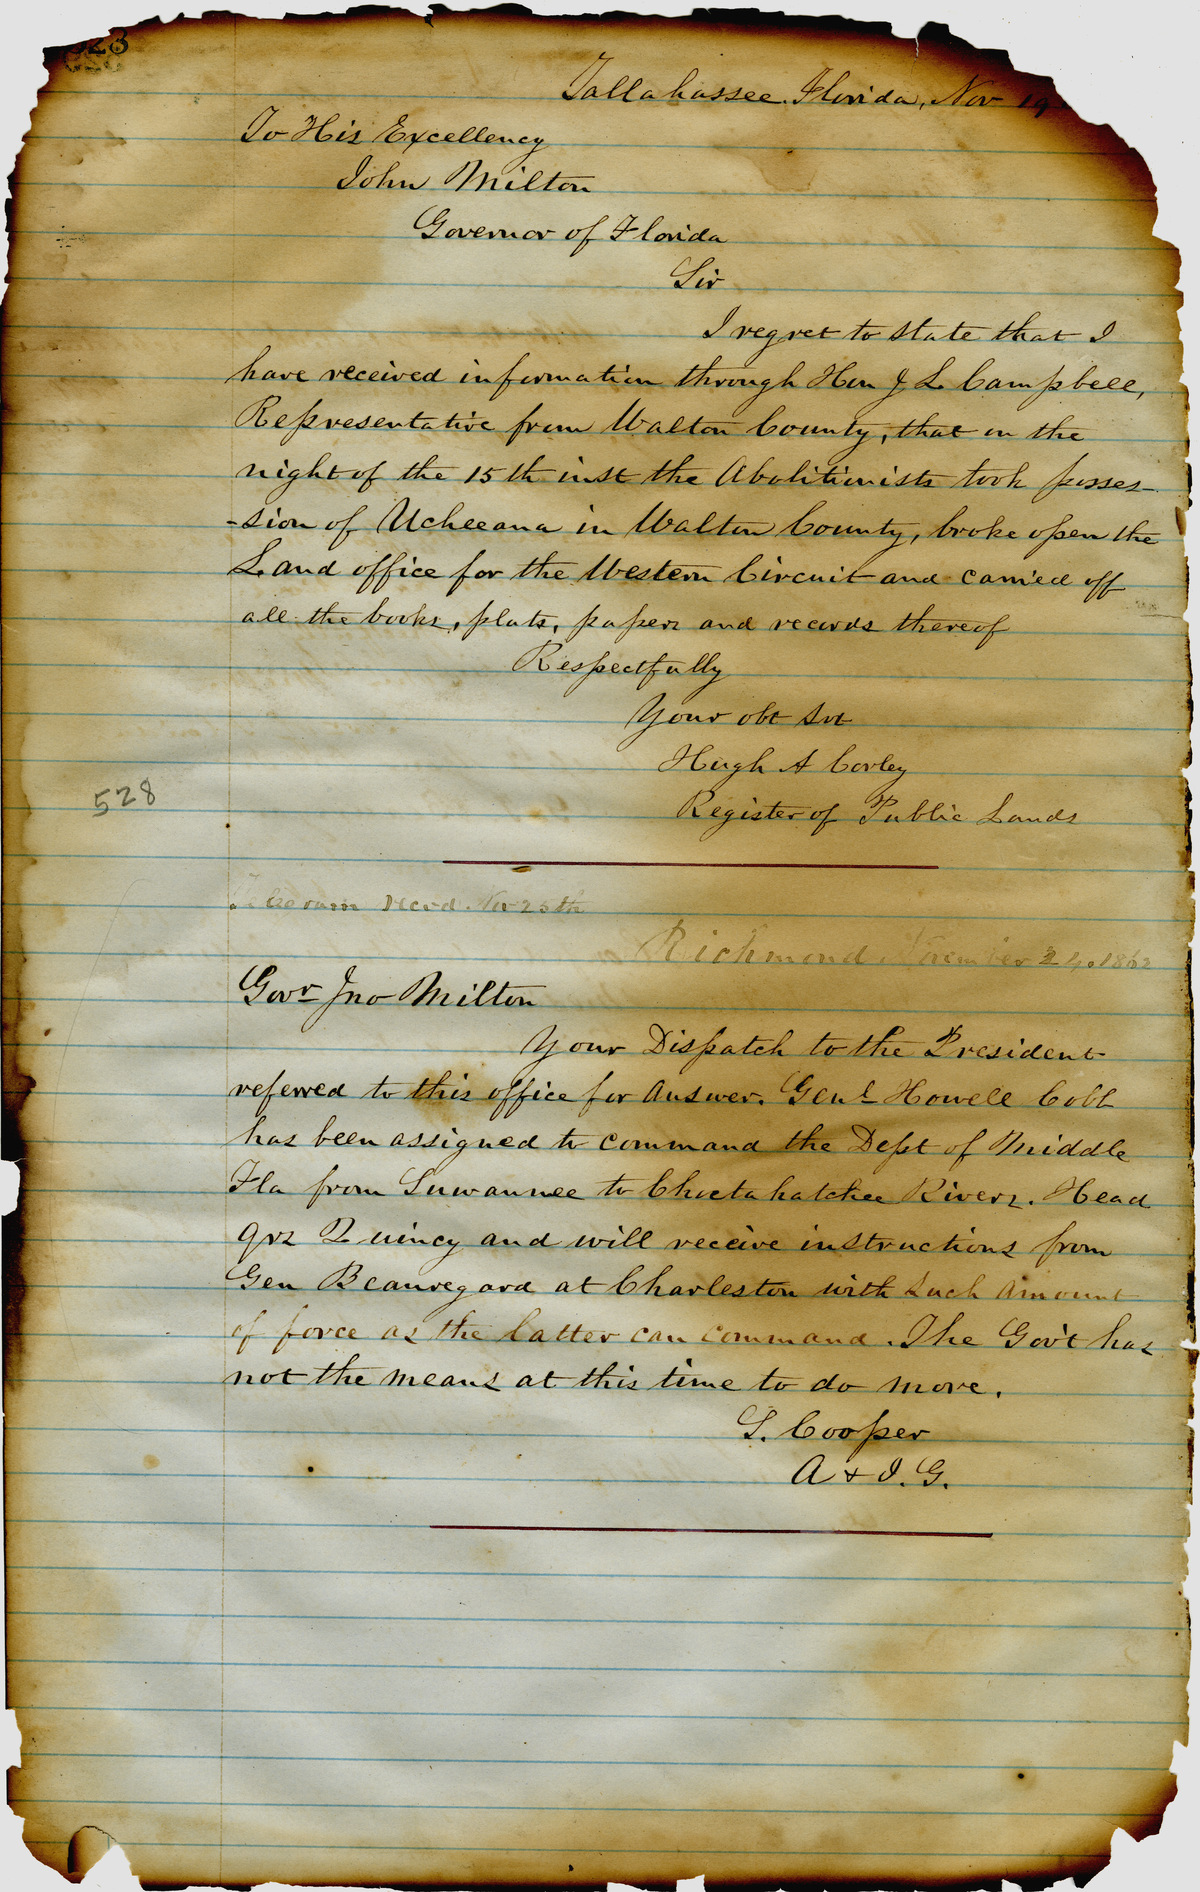 528
Tallahassee Florida, Nov 19
To His Excellency
John Milton
Governor of Florida
Sir
I regret to state that I
have received information through Hon J L Campbell,
Representative from Walton County, that on the
night of the 15th inst the Abolitionists took posses-
-sion of Ucheeana in Walton County, broke open the
Land office for the Western Circuit and carried off
all the books, plats, papers and records thereof
Respectfully
Your obt Svt
Hugh A Corley
Register of Public Lands
528
Telegram Recd Nov 25th
Richmond November 24, 1862
Govr Jno Milton
Your Dispatch to the President
referred to this office for Answer. Genl Howell Cobb
has been assigned to command the Dept of Middle
Fla from Suwannee to Choctahatchee Rivers. Head
qrs Quincy and will receive instructions from
Gen Beauregard at Charleston with such amount
of force as the latter can command. The Gov't has
not the means at this time to do more.
S. Cooper
A & I. G.